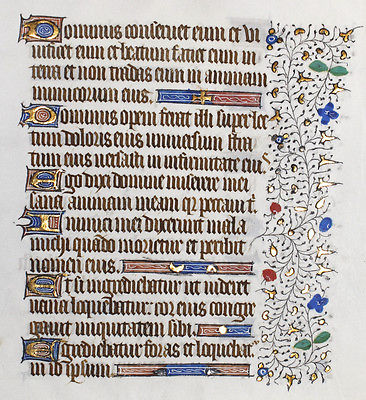 Dominus conseruet eum et vi
uificet eum et beatum faciet eum in
terra et non tradas eum in animam
inimicorum eius.
Dominus opem ferat illi super lec
tum doloris eius uniuersum stra
tum eius uersasti in infirmitate eius
Ego dixi domine miserere mei
sana animam meam qr peccaui t
Inimici mei dixerunt mala
michi quado morietur et peribit
nomen eius.
Et si ingrediebatur ut uideret
uana loquebatur cor eius congre
gauit iniquitatem sibi.
Egrediebatur foras et loquebat
in id ipsum